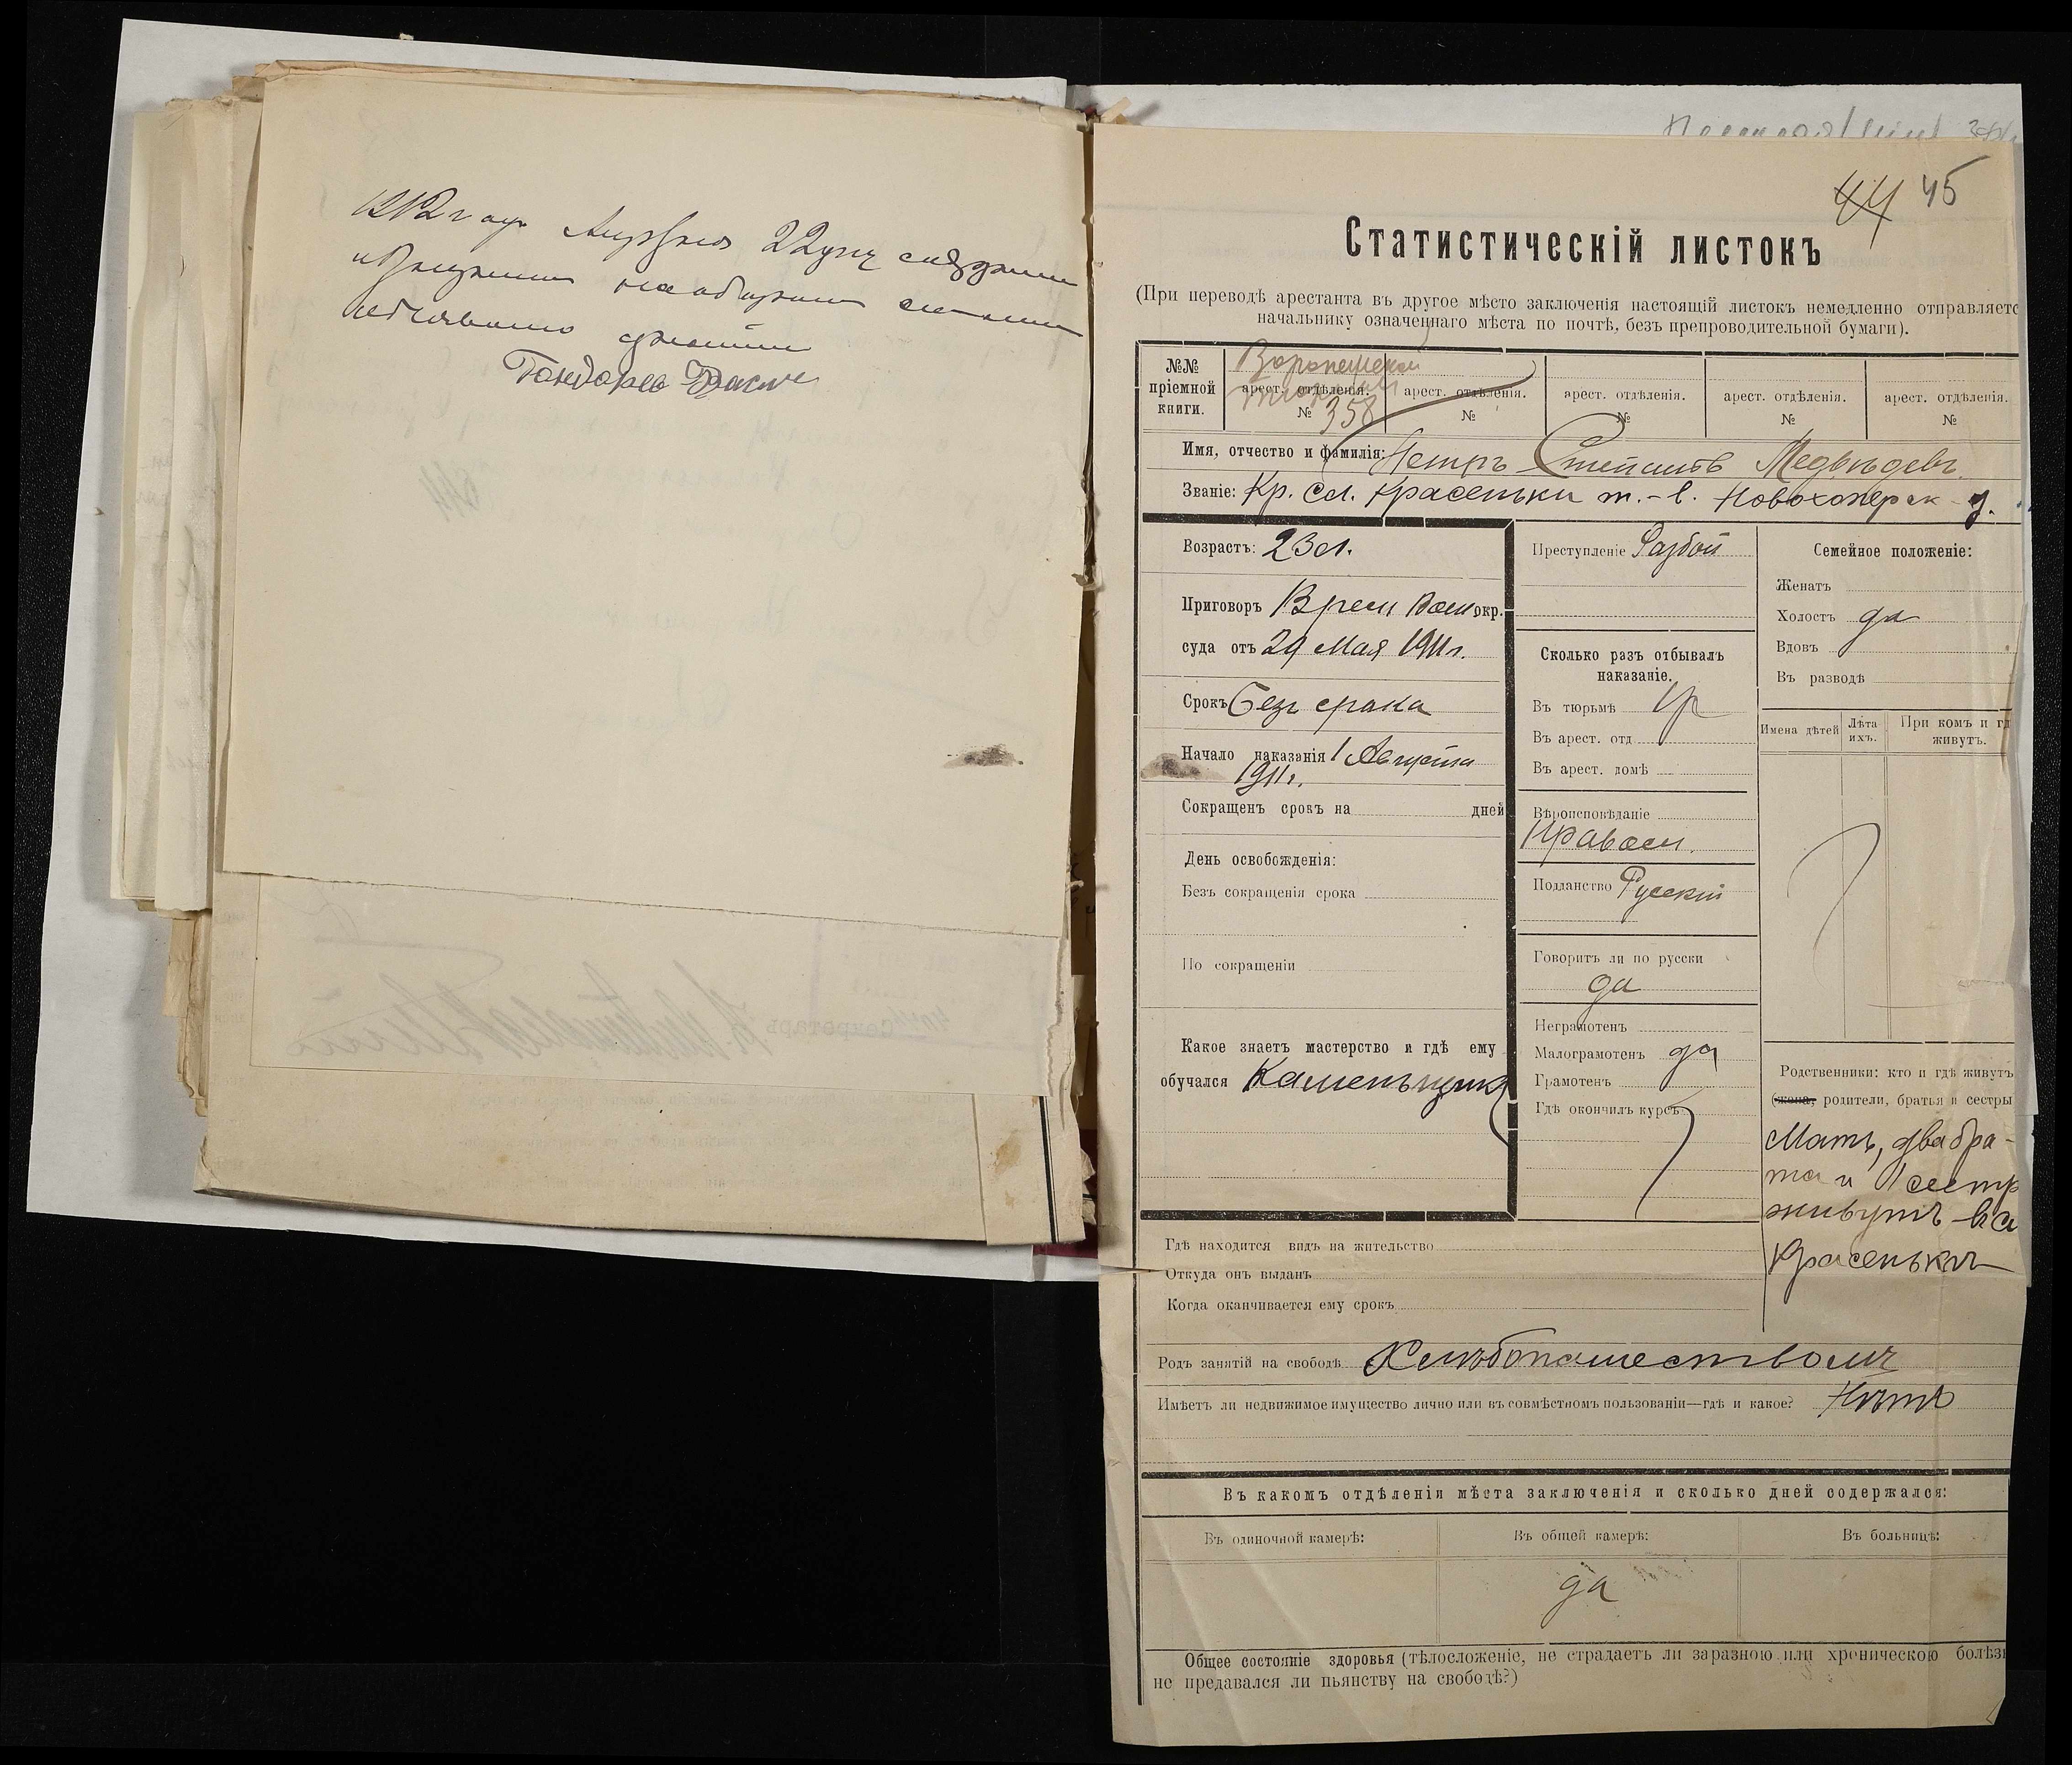 1912 года 22 дня
44 45
Статистическій листокъ
(При переводѣ арестанта въ другое мѣсто заключенія настоящій листокъ немедленно отправляетс
начальнику означеннаго мѣста по почтѣ, безъ препроводительной бумаги).
№№
пріемной
книги.
Воронежской
арест. отдѣленія.
№ 358
арест. отдѣленія.
№
арест. отдѣленія.
№
арест. отдѣленія.
№
арест. отдѣленія.
№
Имя, отчество и фамилія: Петръ Степановъ Медвѣдевъ
Званіе: Кр. сл. Красеньки т.-в. Новохоперск у.
Возрастъ: 23 л.
Приговоръ Врем Воен окр.
суда отъ 29 Мая 1911 г.
Срокъ Безъ срока
Начало наказанія 1 Августа
1911 г.
Сокращенъ срокъ на дней
День освобожденія:
Безъ сокращенія срока
По сокращеніи
Какое знаетъ мастерство и гдѣ ему
обучался Каменьщикъ
Преступленіе Разбой
Сколько разъ отбывалъ
наказаніе.
Въ тюрьмѣ
Въ арест. отд
Въ арест. домѣ
Вѣроисповѣданіе
Правосл.
Подданство Русскій
Говоритъ ли по русски
да
Неграмотенъ
Малограмотенъ да
Грамотенъ
Гдѣ окончилъ курсъ
Семейное положеніе:
Женатъ
Холостъ да
Вдовъ
Въ разводѣ
Имена дѣтей
Лѣта
ихъ.
При комъ и гд
живутъ.
Родственники: кто и гдѣ живутъ
(жена, родители, братья и сестры
Мать, два бра-
та и 1 сестр
живутъ в сл
Красенькихъ
Гдѣ находится видъ на жительство
Откуда онъ выданъ
Когда оканчивается ему срокъ
Родъ занятій на свободѣ Хлѣбопашествомъ
Имѣетъ ли недвижимое имущество лично или въ совмѣстномъ пользованіи—гдѣ и какое? Нѣтъ
Въ какомъ отдѣленіи мѣста заключенія и сколько дней содержался:
Въ одиночной камерѣ:
Въ общей камерѣ:
Въ больницѣ:
да
Общее состояніе здоровья (тѣлосложеніе, не страдаетъ ли заразною или хроническою болѣзн
не предавался ли пьянству на свободѣ?)